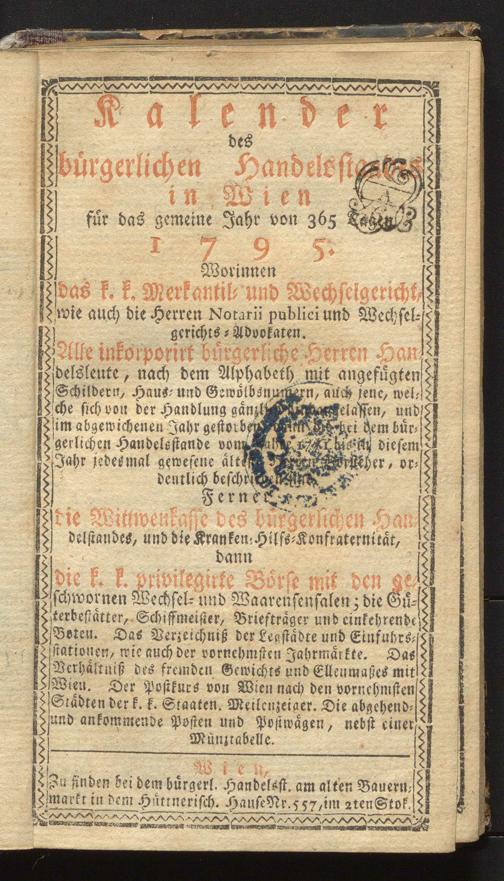 Kalender
des
bürgerlichen Handelsstandes
in Wien
für das gemeine Jahr von 365 Tagen
1795.
Worinnen
das k. k. Merkantil- und Wechselgericht,
wie auch die Herren Notarii publici und Wechsel-
gerichts-Advokaten.
Alle inkorporirt bürgerliche Herren Han
delsleute, nach dem Alphabeth mit angefügten
Schildern, Haus- und Gewölbsnumern, auch jene, wel-
che sich von der Handlung gänzlich, und
im abgewichenen Jahr gestorben bei dem bür-
gerlichen Handelsstande vom Jahre bis zu diesem
Jahr jedesmal gewesene Vorsteher, or-
dentlich beschrieben
Ferner
die Wittwenkasse des bürgerlichen Han
delstandes, und die Kranken-Hilfs-Konfraternität,
dann
die k. k. privilegirte Börse mit den ge-
schwornen Wechsel- und Waarensensalen; die Gü-
terbestätter, Schiffmeister, Briefträger und einkehrende
Boten. Das Verzeichniß der Legstädte und Einfuhrs-
stationen, wie auch der vornehmsten Jahrmärkte. Das
Verhältniß des fremden Gewichts und Ellenmaßes mit
Wien. Der Postkurs von Wien nach den vornehmsten
Städten der k. k. Staaten. Meilenzeiger. Die abgehend-
und ankommende Posten und Postwägen, nebst einer
Münztabelle.
Wien,
Zu finden bei dem bürgerl. Handelsst. am alten Bauern-
markt in dem Hüttnerisch. Hause Nr. 557, im 2ten Stok.